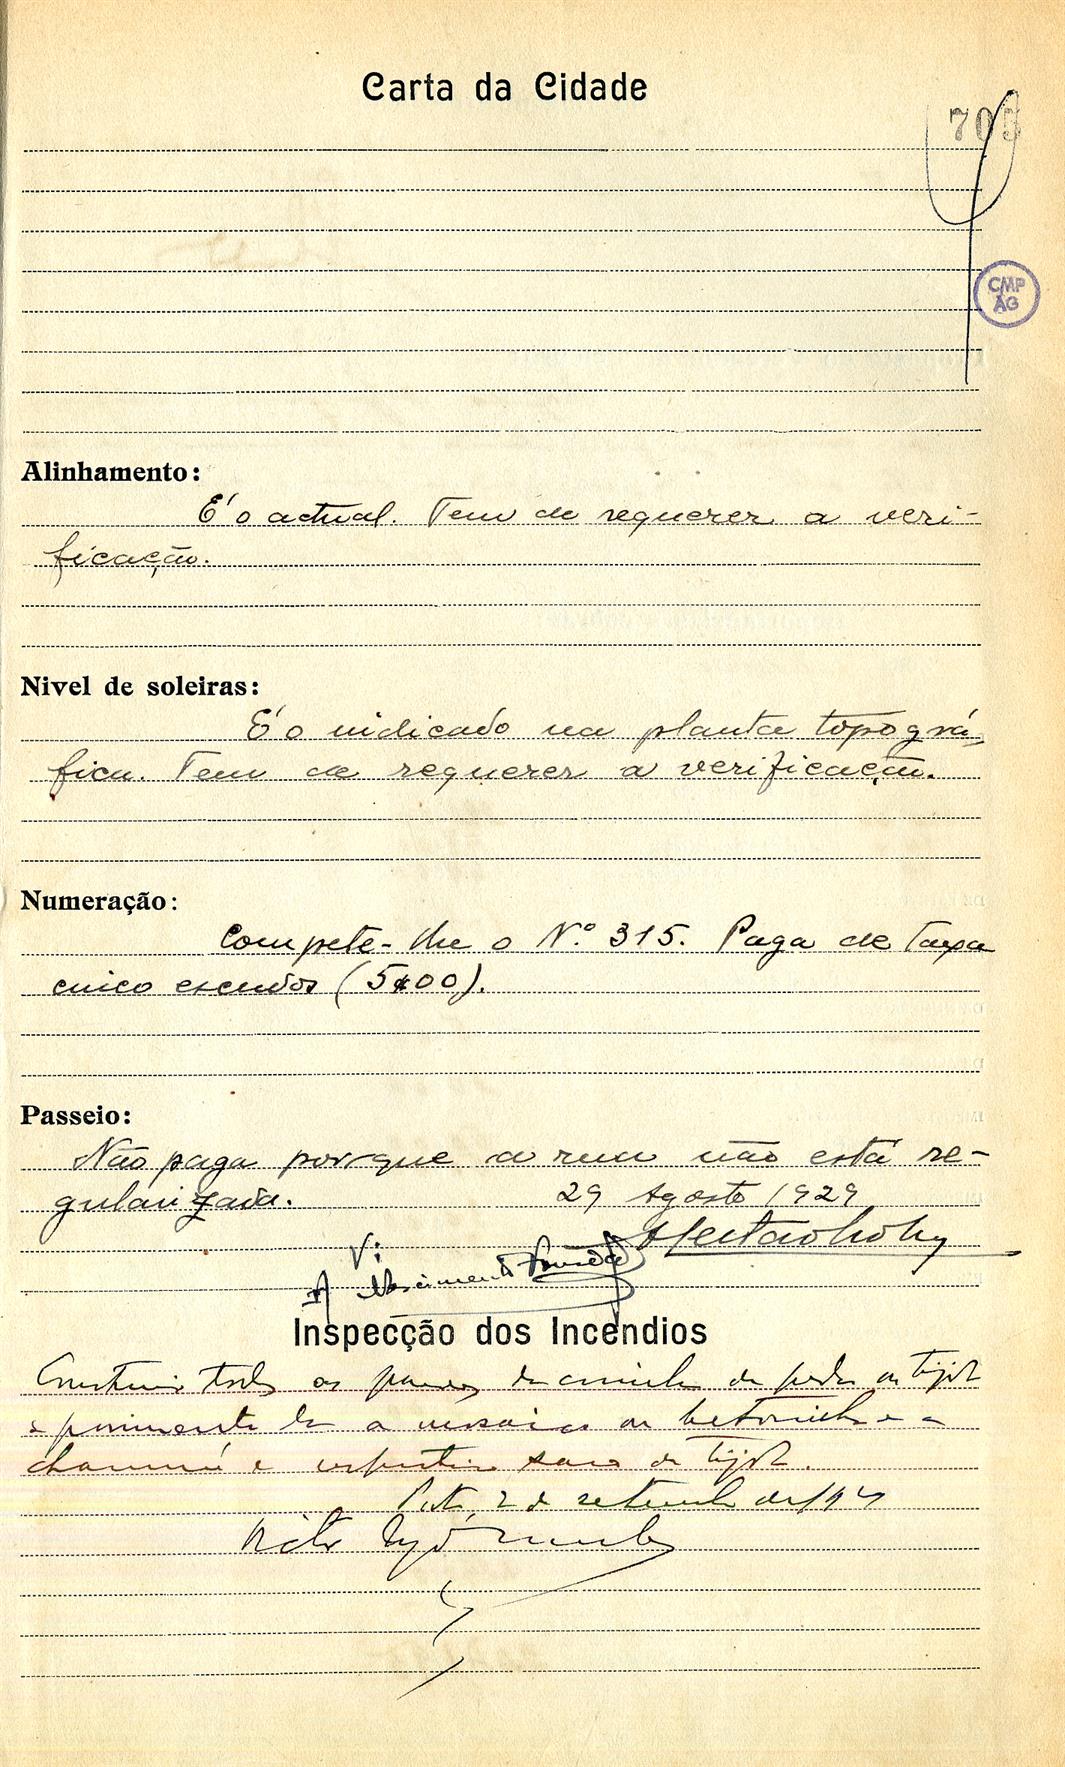 Carta da Cidade
705
CMP
AG
Alinhamento:
É o actual. Tem de requerer a veri-
ficação.
Nivel de soleiras:
É o indicado na planta topográ-
fica. Tem de requerer a verificação.
Numeração:
Compete-lhe o Nº 315. Paga de taxa
cinco escudos (5$00).
Passeio:
Não paga porque a rua não está re-
gularizada. 29 Agosto 1929
Vi
A Nascimento Fonseca
Inspecção dos Incendios
Construir todas as paredes da cosinha de pedra ou tijolo
o pavimento da a mosaico ou betonilha e a
chaminé e tijolo.
Porto, 2 de setembro de 1929